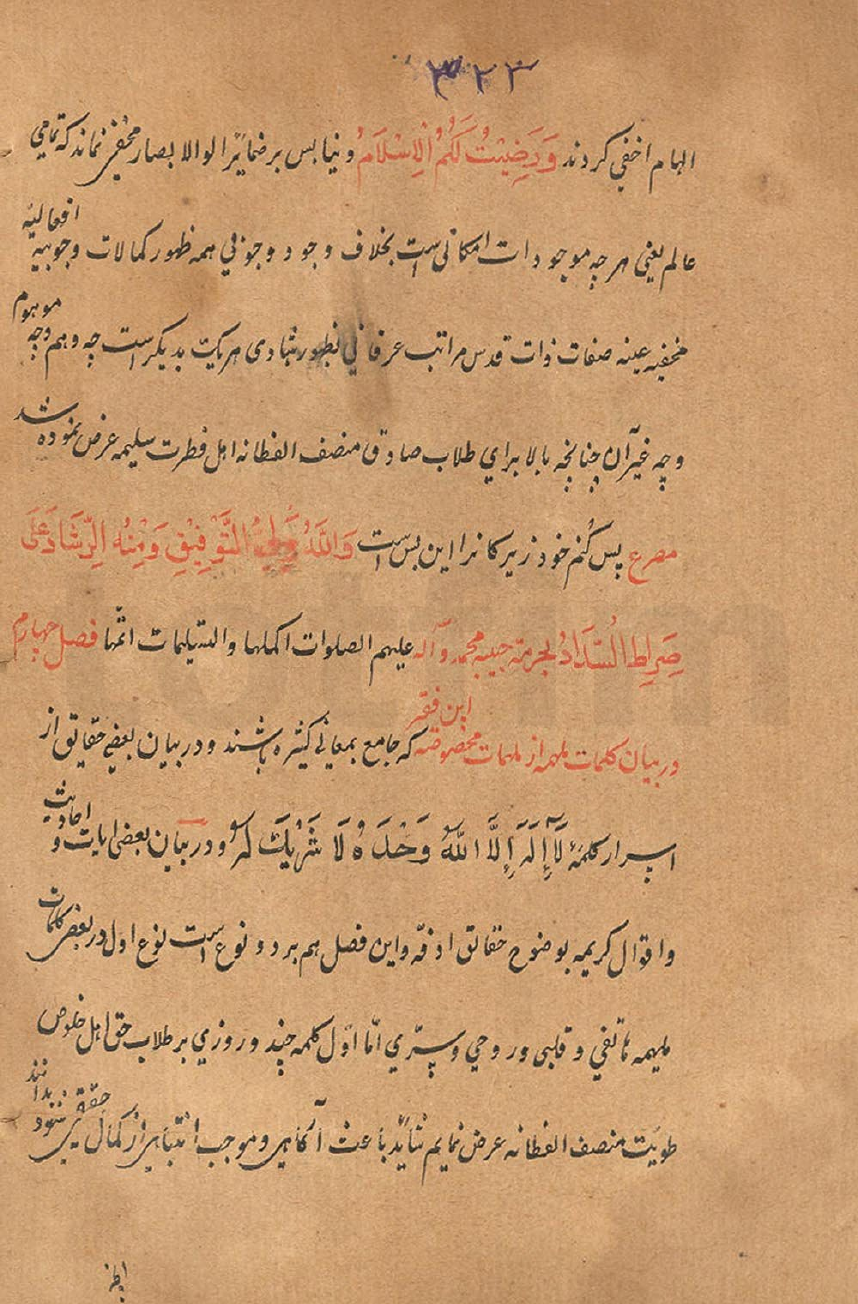 ۳۲۳
الهام اخفی کردند وَرَضِیْتُ لَکُمُ الْاِسْلَامَ و نیابس بر ضمائر اولوالابصار مخفی نماند که تمامی
عالم یعنی هرچه موجودات امکانی است بخلاف وجود وجوبی همه ظهور کمالات وجوبیه افعالیه
مخفیه عینه صفات ذات قدس مراتب عرفانی بظهور هریک بدیکر است چه وهم وچه موهوم
وچه غیر آن چنانچه بالا برای طلاب صادق منصف الفطانه اهل فطرت سلیمه عرض نموده شد
مصرع پس کنم خود زیرکانرا این بس است وَاللّٰهُ وَلِیُّ التَّوْفِیْقِ وَمِنْهُ الرَّشَادُ عَلَی
صِرَاطِ السَّدَادِ بحرمة حبیبه محمد وآله علیهم الصلوات اکملها والتسلیمات اتمّها فصل چهارم
در بیان کلمات ملهمه از ملهمات مخصوصه این فقیر که جامع بمعانی کثیره باشند و در بیان بعضی حقائق از
اسرار کلمهٔ لَا اِلٰهَ اِلَّا اللّٰهُ وَحْدَهُ لَا شَرِیْكَ لَهُ و در بیان بعضی ایات و احادیث
واقوال کریمه بوضوح حقائق ادقه و این فصل هم بر دو نوع است نوع اول در بعض کلمات
ملهمه هاتفی و قلبی و روحی و سرّی امّا اوّل کلمه چند و روزی بر طلاب حق اهل خلوص
طویت منصف الفطانه عرض نمایم شاید باعث آگاهی و موجب انتباهی از کمال حقیقی شود بدانند